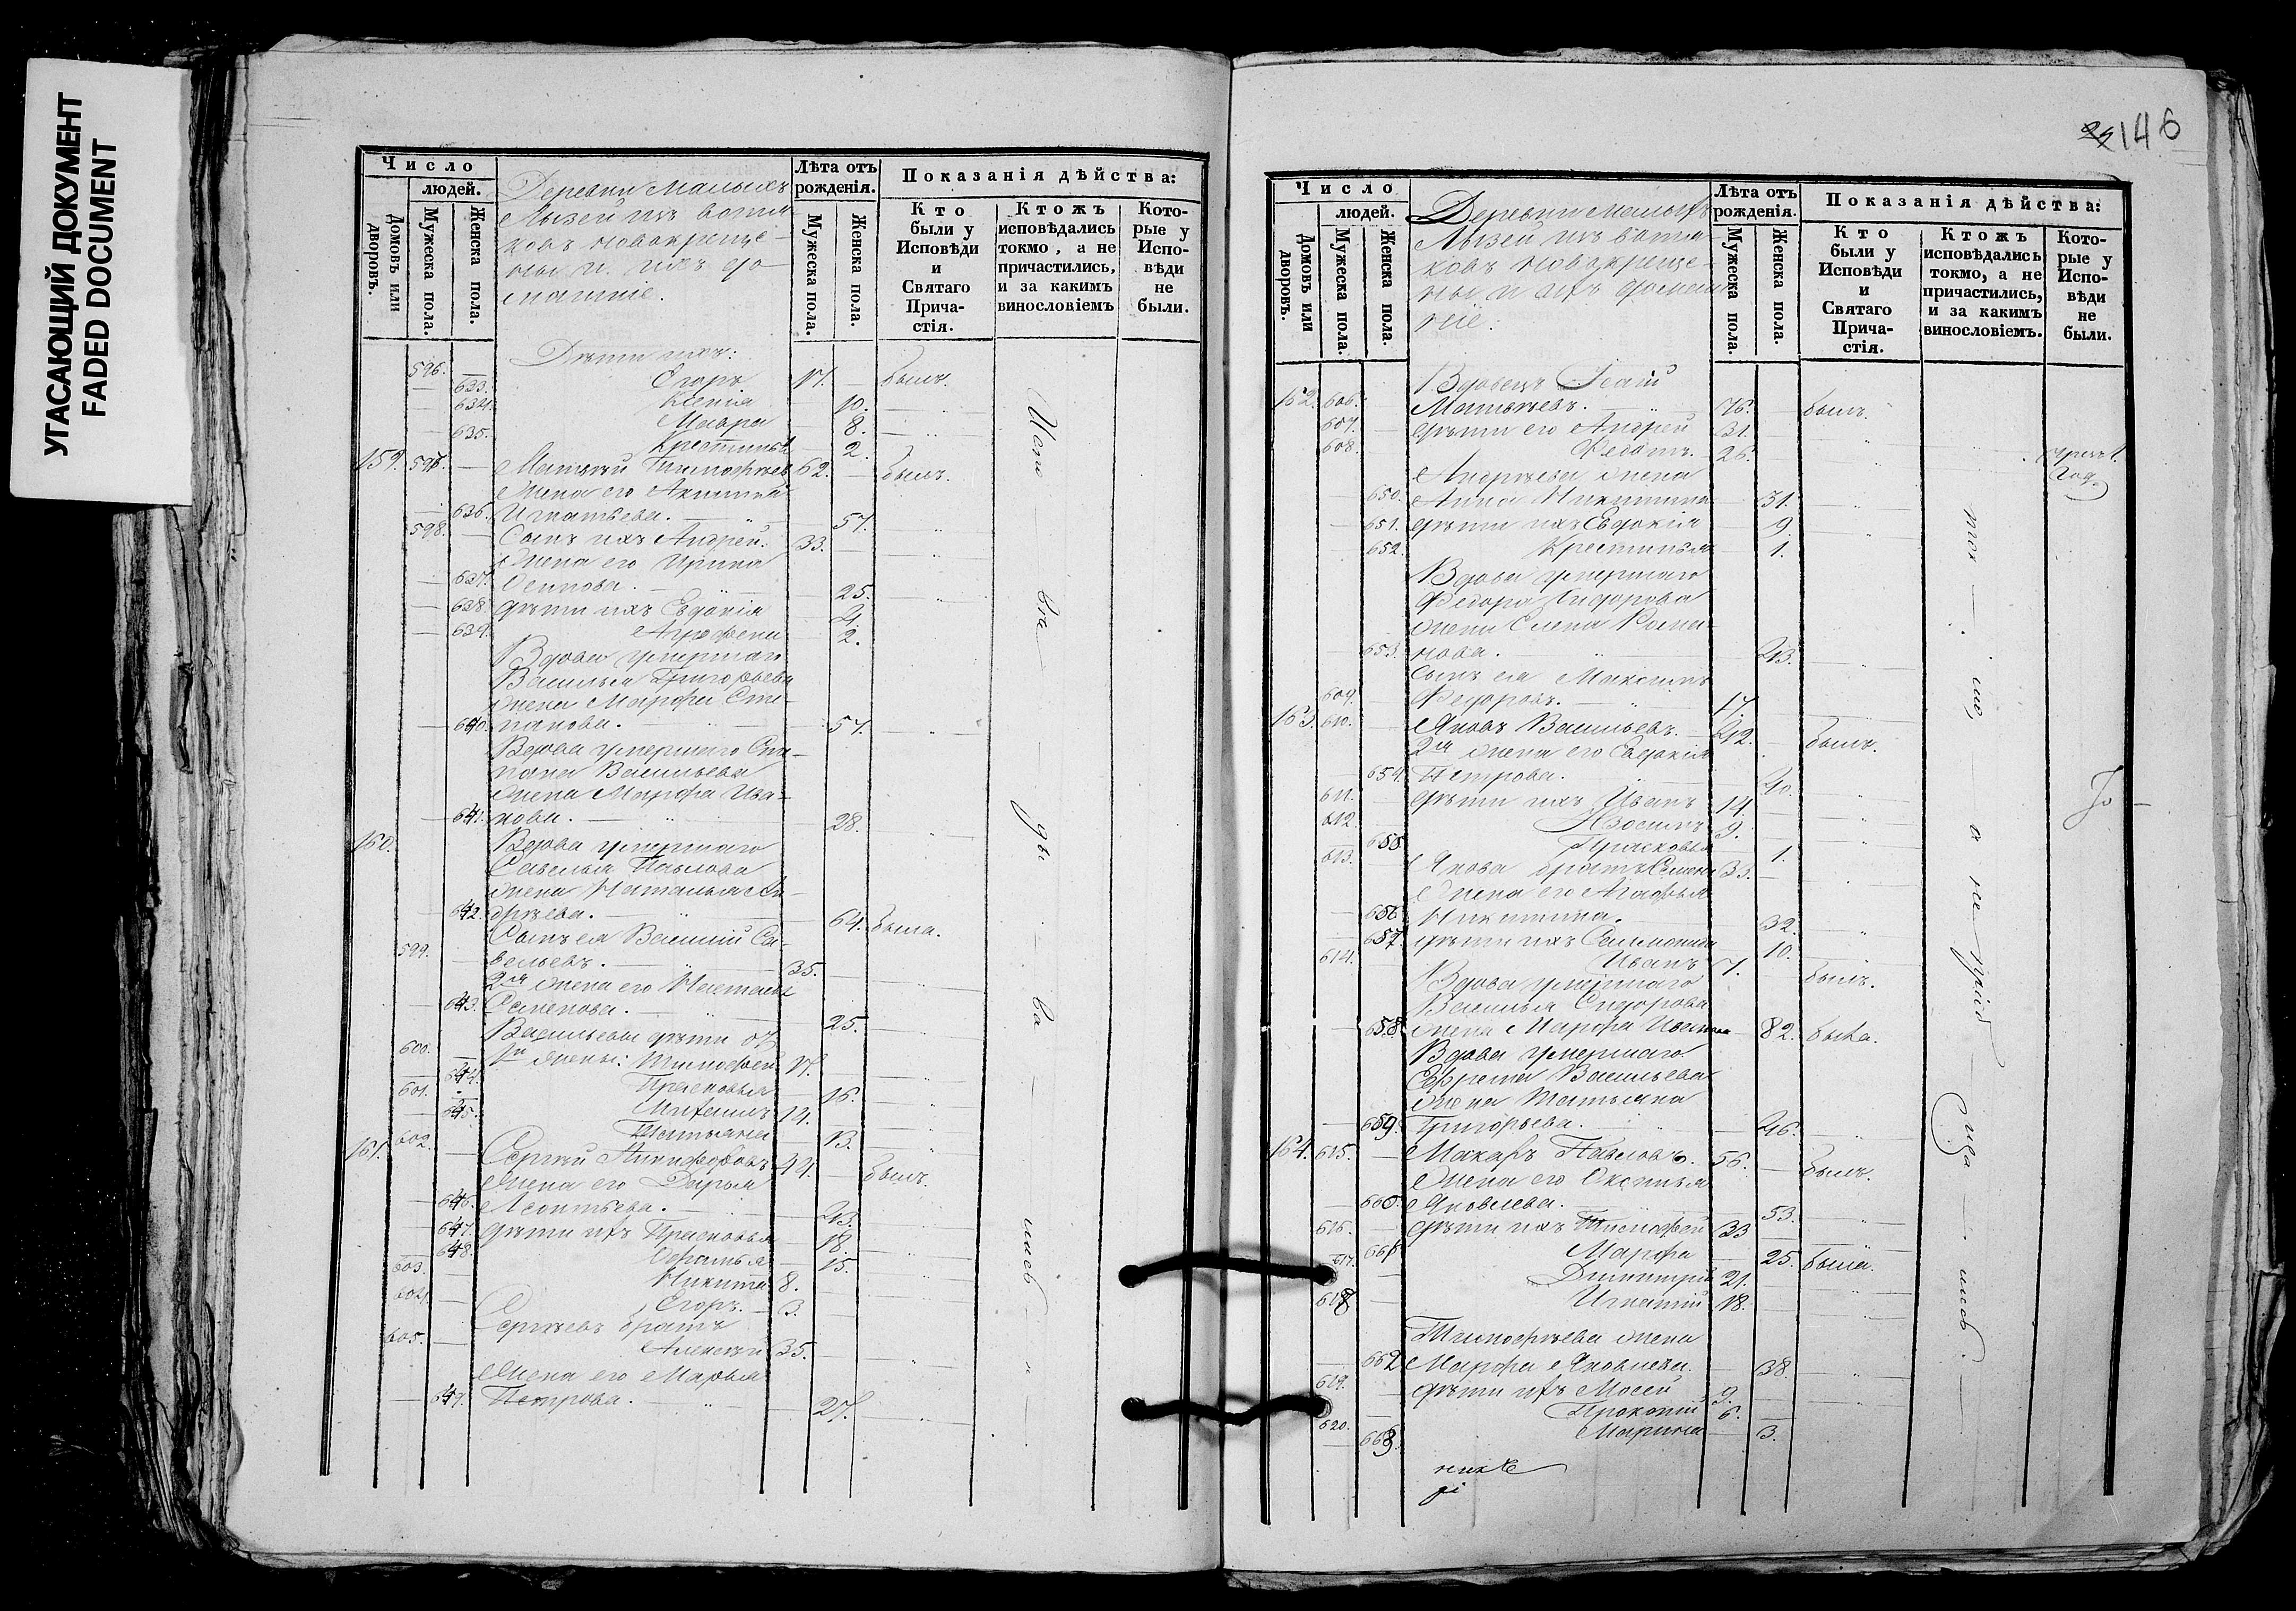 УГАСАЮЩИЙ ДОКУМЕНТ
FADED DOCUMENT
Число
людей.
Домовъ или дворовъ.
Мужеска пола.
Женска пола.
Деревни Малыхъ
Лызей изъ вотя-
ковъ новокреще-
ны и ихъ до-
машніе.
Лѣта отъ рожденія.
Мужеска пола.
Женска пола.
Показанія дѣйства:
Кто были у Исповѣди и Святаго Прича-стія.
Ктожъ исповѣдались токмо, а не причастились, и за какимъ винословіемъ
Кото-рые у Испо-вѣди не были.
Дѣти ихъ:
596. Егоръ 17. былъ.
633. Ксенія 10.
634. Мавра 8.
635. Крестинья 2.
159. 597. Матвѣй Тимофѣевъ 62. былъ.
Жена его Акилина
636. Игнатьева. 57.
598. Сынъ ихъ Андрей. 33.
Жена его Ирина
637. Осипова. 25.
638. дѣти ихъ Евдокія 4.
639. Агрофена 2.
Вдова умершаго
Василья Григорьева
жена Марфа Сте-
640. панова. 57.
Вдова умершаго Сте-
пана Васильева
жена Марфа Ива-
641. нова. 28.
160. Вдова умершаго
Савелья Павлова
жена Наталья Ан-
642. дрѣева. 64. была.
Сынъ ея Василій Са-
599. вельевъ. 35.
2я жена его Настасья
643. Семенова. 25.
Васильевы дѣти отъ
600. 1й жены: Тимофей 17.
644. Прасковья 16.
601. Михаилъ 14.
645. Татьяна 13.
161. 602. Сергѣй Никифоровъ 44. былъ.
Жена его Дарья
646. Леонтьева. 43.
647. дѣти ихъ Прасковья 18.
648. 15.
603. Никита 8.
604. Егоръ. 3.
Сергѣевъ братъ
605. Алексѣй 35.
Жена его Марья
649. Петрова. 27.
146
Число
людей.
Домовъ или дворовъ.
Мужеска пола.
Женска пола.
Деревни Малыхъ
Лызей изъ вотя-
ковъ новокреще-
ны и ихъ домаш-
ніе.
Лѣта отъ рожденія.
Мужеска пола.
Женска пола.
Показанія дѣйства:
Кто были у Исповѣди и Святаго Прича-стія.
Ктожъ исповѣдались токмо, а не причастились, и за какимъ винословіемъ.
Кото-рые у Испо-вѣди не были.
Вдовецъ Исай
162. 606. Матвѣевъ. 76. былъ.
607. дѣти его Андрей 31.
608. Федотъ. 26.
Андрѣева жена
650. Анна Никитина 31.
651. дѣти ихъ Евдокія 9
652. Крестинья 1.
Вдова умершаго
Федора Сидорова
жена Елена Рома-
653. нова. 43.
Сынъ ея Максимъ
609. Федоровъ. 17.
163. 610. Яковъ Васильевъ. 42. былъ.
2я жена его Евдокія
654. Петрова. 40.
611. дѣти ихъ Иванъ 14.
612. Изосимъ 9.
655. Прасковья 1.
613. Якова братъ Семенъ 33.
Жена его Агафья
656. Никитина. 32.
657. дѣти ихъ 10.
614. Иванъ 7. былъ.
Вдова умершаго
Василья Сидорова
658. жена Марфа Иванова 82. была.
Вдова умершаго
Ефрема Васильева
жена Татьяна
659. Григорьева. 46.
164. 615. Макаръ Павловъ. 56. былъ.
Жена его Оксинья
660. Яковлева. 53.
616. дѣти ихъ Тимофей 33
661. Марфа 25. была.
617. Димитрій 21.
618. Игнатій 18.
Тимофѣева жена
662 Марфа Яковлева. 38.
619. дѣти ихъ Мосей 9.
620. Прокопій 6.
663. Марина 3.